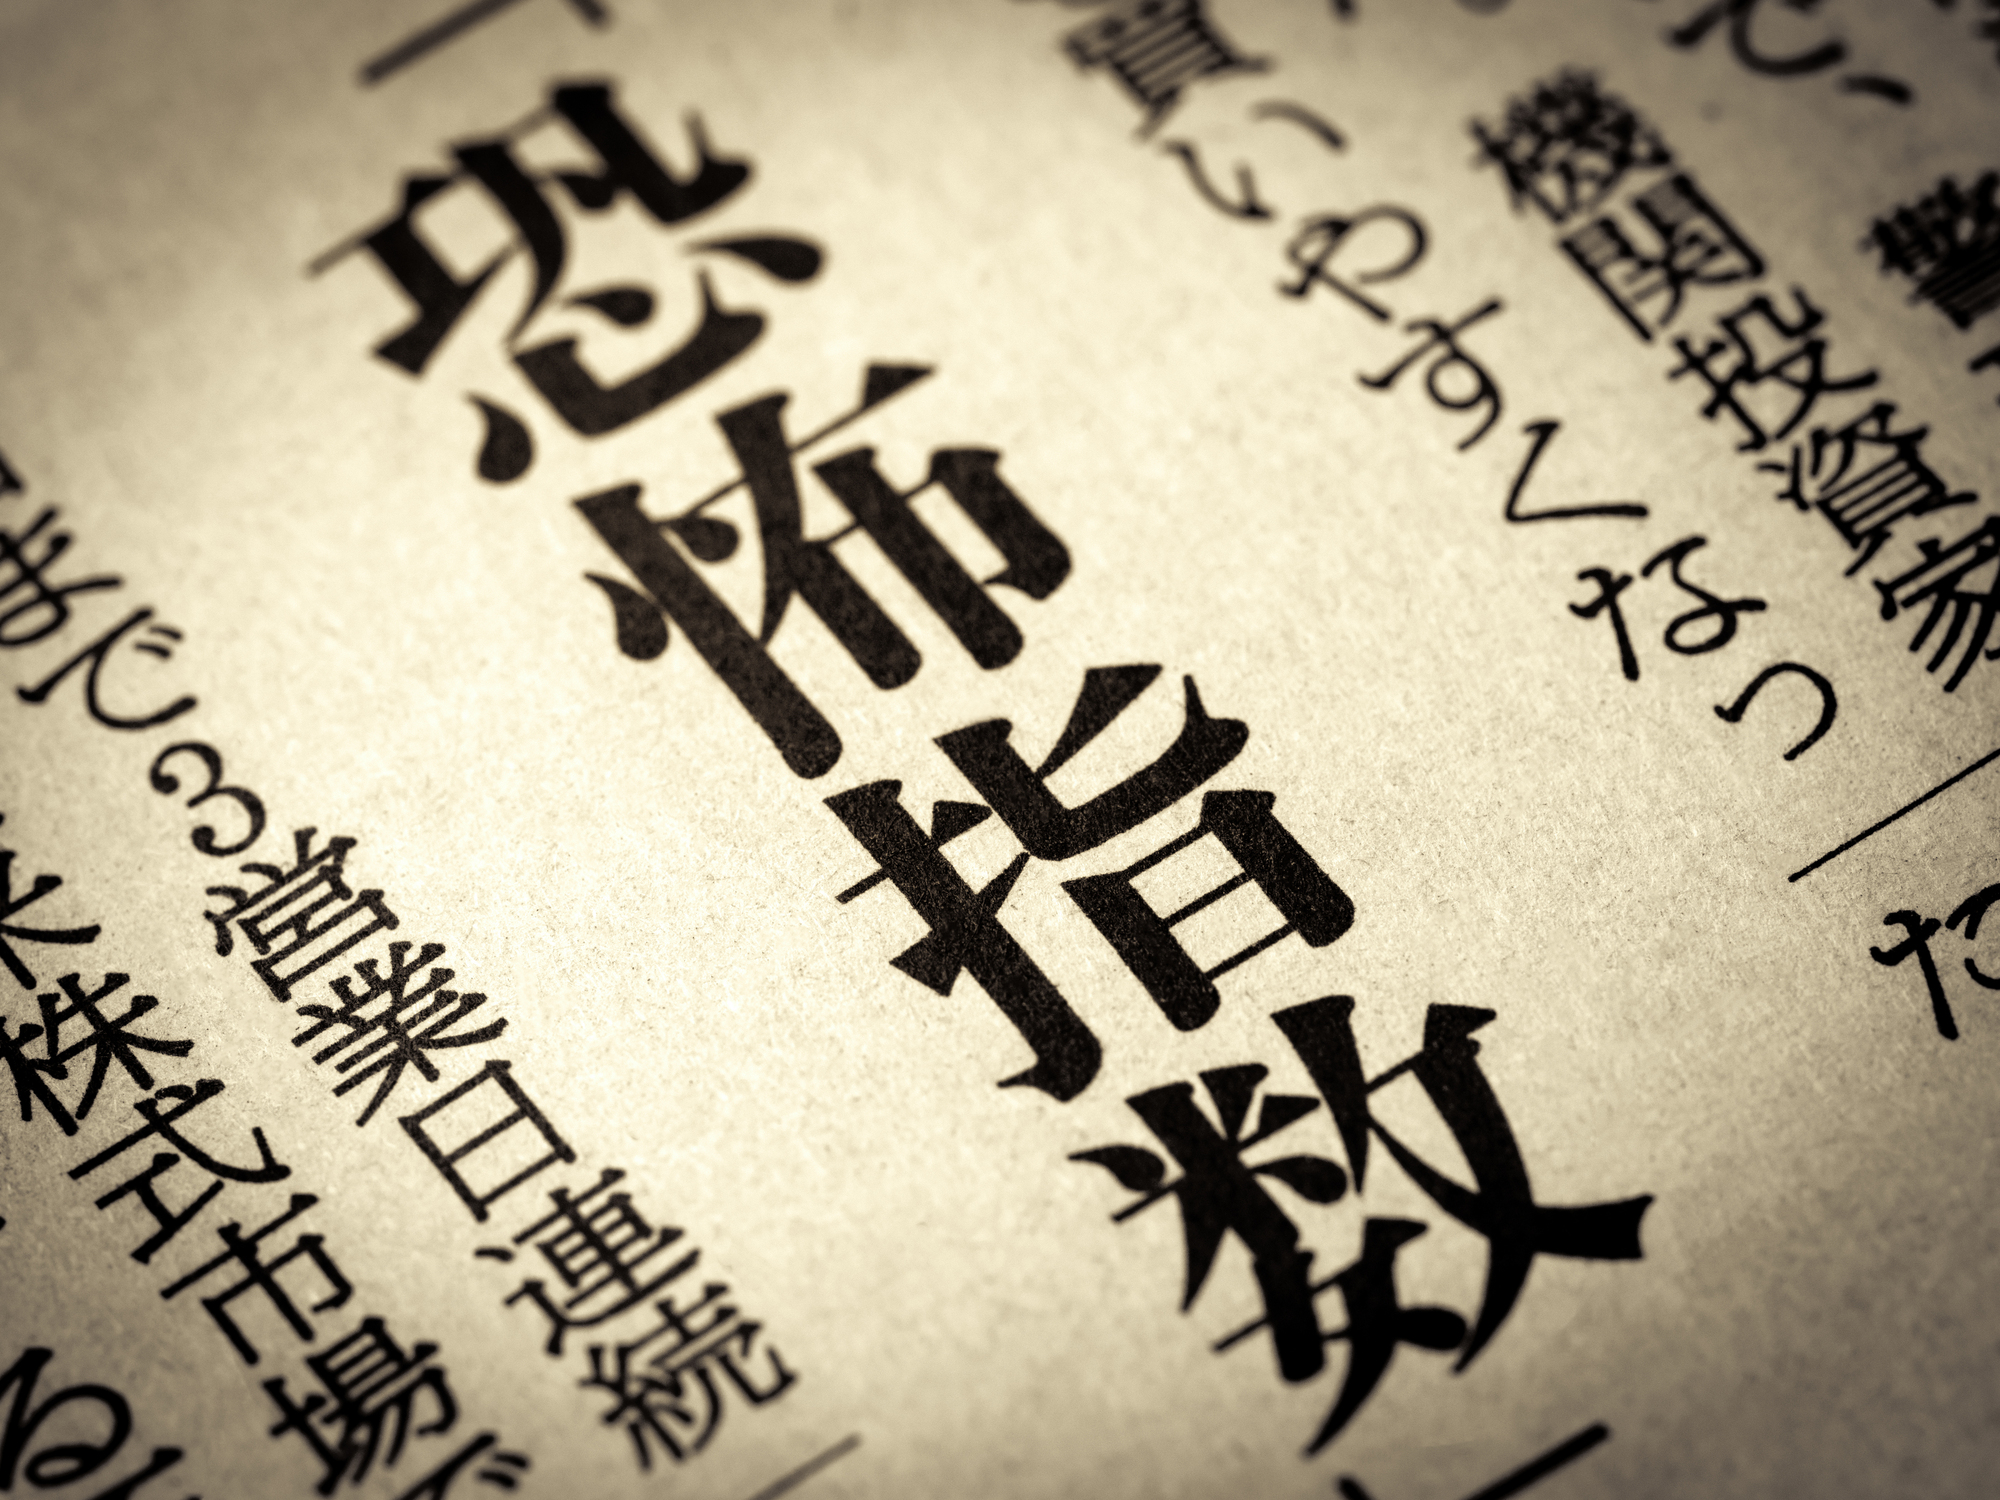 機関投資家
いやすくなっ
「恐怖指数」
まで3営業日連続
株式市場で
る